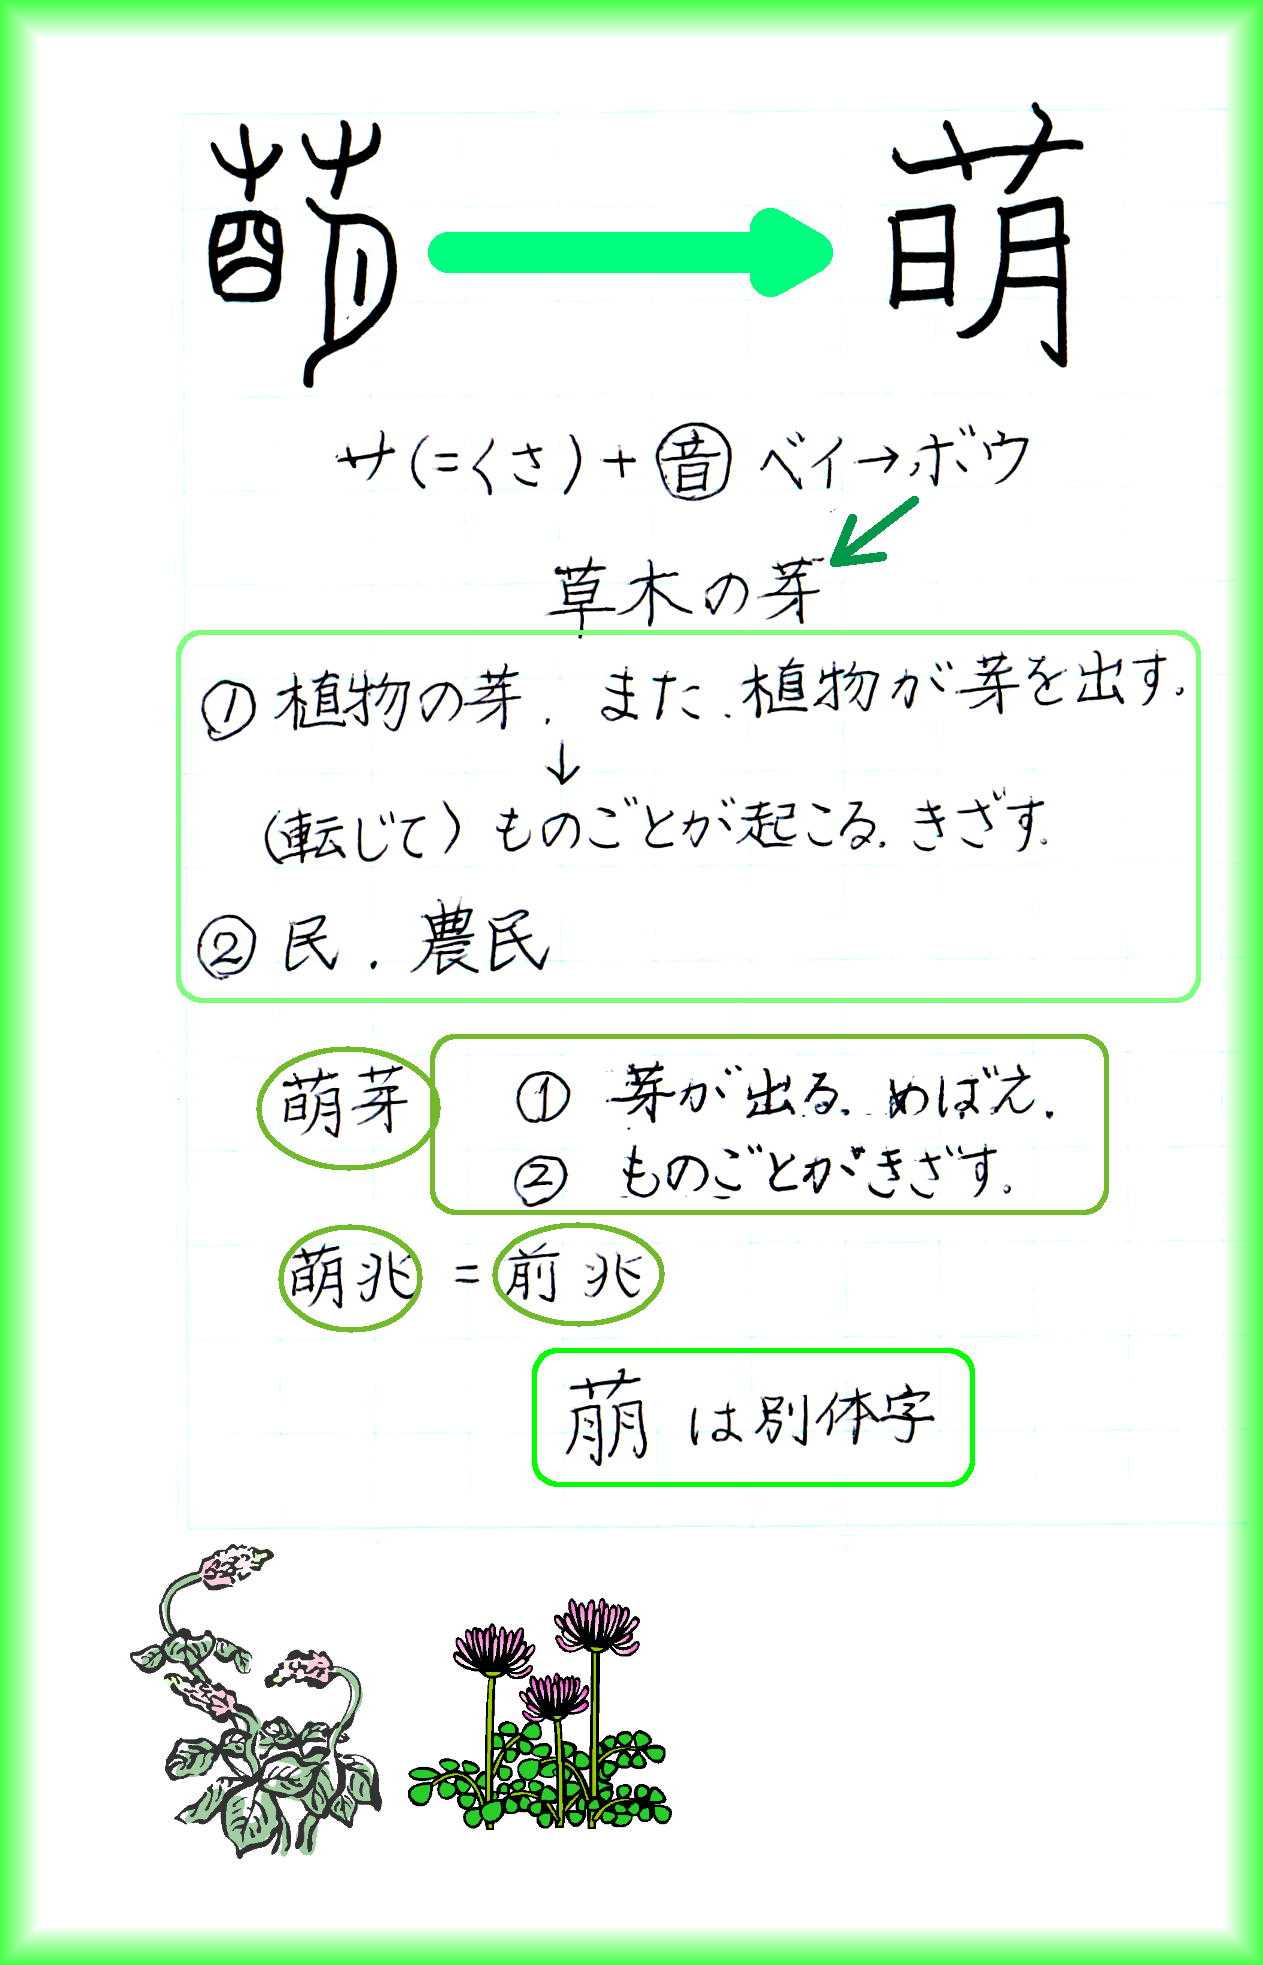 萌 → 萌
サ(=くさ)+音 ベイ→ボウ
草木の芽
① 植物の芽. また.植物が芽を出す。
↓
(転じて)ものごとが起こる.きざす。
② 民.農民
萌芽 ① 芽が出る.めばえ.
② ものごとがきざす。
萌兆 = 前兆
萠は別体字